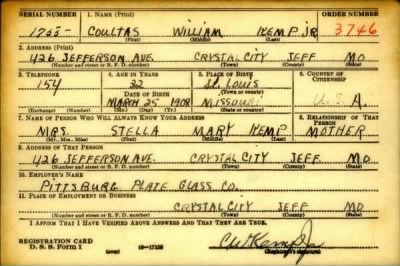 SERIAL NUMBER 1. NAME (Print) ORDER NUMBER
1255- COULTAS WILLIAM KEMP JR. 3746
(First) (Middle) (Last)
2. ADDRESS (Print)
426 JEFFERSON AVE. CRYSTAL CITY JEFF MO.
(Number and street or R. F. D. number) (Town) (County) (State)
3. TELEPHONE 4. AGE IN YEARS 5. PLACE OF BIRTH 6. COUNTRY OF CITIZENSHIP
154 32 St. Louis
DATE OF BIRTH (Town or county)
MARCH 25 1908 MISSOURI U.S.A.
(Exchange) (Number) (Mo.) (Day) (Yr.) (State or country)
7. NAME OF PERSON WHO WILL ALWAYS KNOW YOUR ADDRESS 8. RELATIONSHIP OF THAT PERSON
MRS. STELLA MARY KEMP MOTHER
(Mr., Mrs., Miss) (First) (Middle) (Last)
9. ADDRESS OF THAT PERSON
426 JEFFERSON AVE. CRYSTAL CITY JEFF. MO.
(Number and street or R. F. D. number) (Town) (County) (State)
10. EMPLOYER'S NAME
PITTSBURG PLATE GLASS CO.
11. PLACE OF EMPLOYMENT OR BUSINESS
CRYSTAL CITY JEFF. MO.
(Number and street or R. F. D. number) (Town) (County) (State)
I AFFIRM THAT I HAVE VERIFIED ABOVE ANSWERS AND THAT THEY ARE TRUE.
REGISTRATION CARD
D. S. S. Form 1 (over) 16-17105 (Registrant's signature)